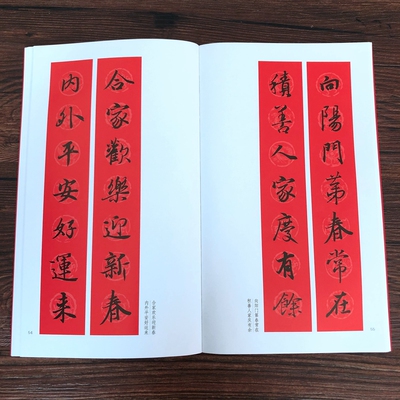 向陽門第春常在
積善人家慶有餘
向阳门第春常在
积善人家庆有余
合家歡樂迎新春
内外平安好運来
合家欢乐迎新春
内外平安好运来